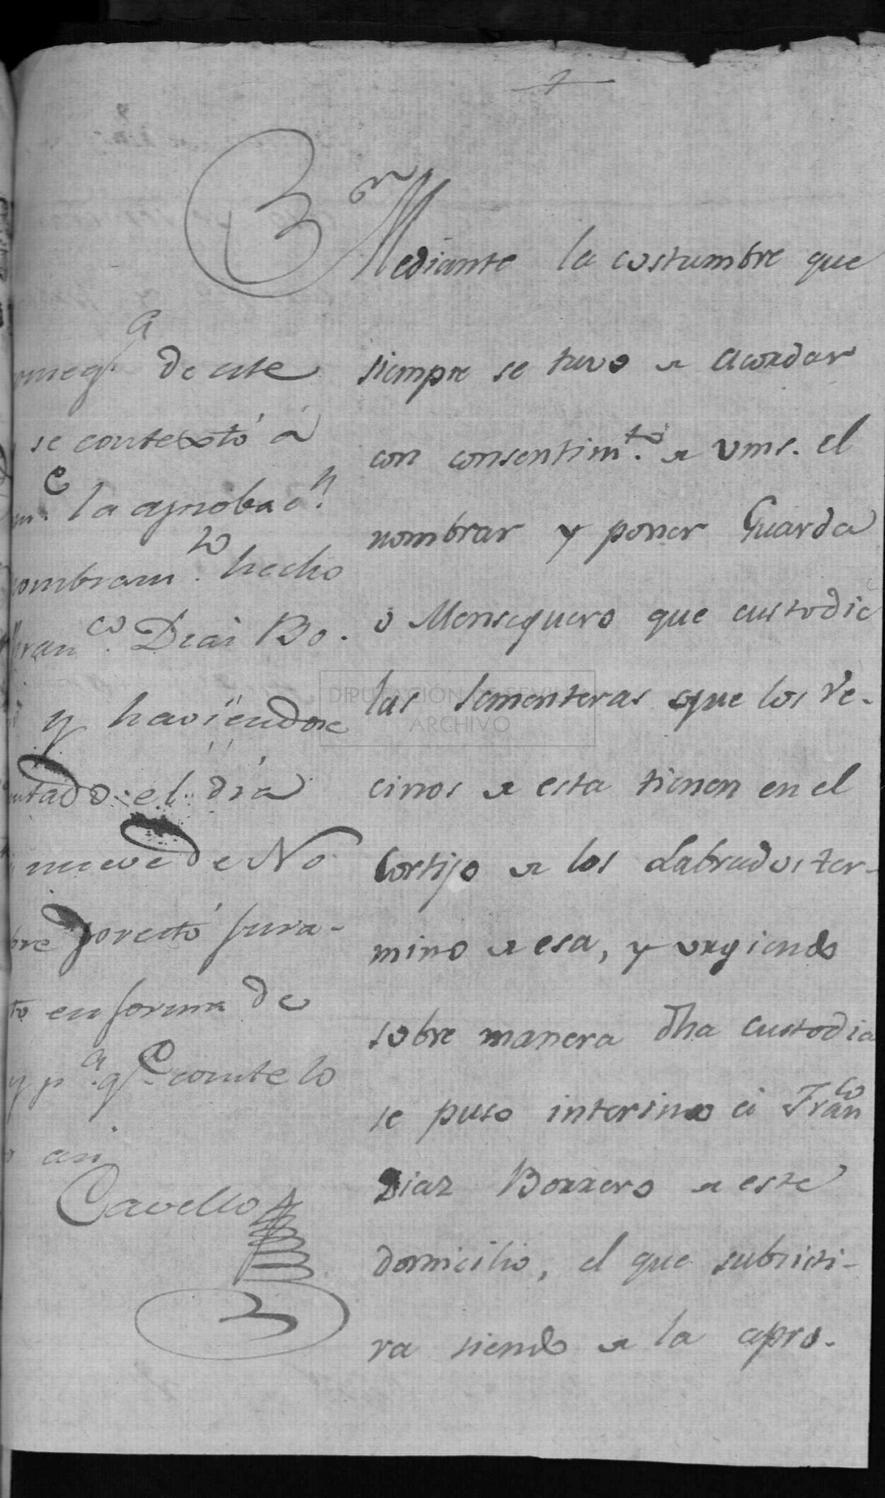 Mediante la costumbre que
siempre se tuvo de acordar
con consentim.to de vms. el
nombrar y poner Guarda
o Mensequero que custodie
las sementeras que los Ve-
cinos de esta tienen en el
Cortijo de los Labrados ter-
mino de esa, y urgiendo
sobre manera dha custodia
se puso interino á Franco
Diaz Borrero de este
domicilio, el que subsisti-
ra siendo de la apro-
de este
se contextó á
la aprobac.n
nombram.to hecho
Fran.co Diaz Bo.
y haviendose
el dia
nueve de No
bre prextó jura-
to en forma de
y p.a q.e conste lo
asi
Cavello
DIPUTACIÓN DE
ARCHIVO